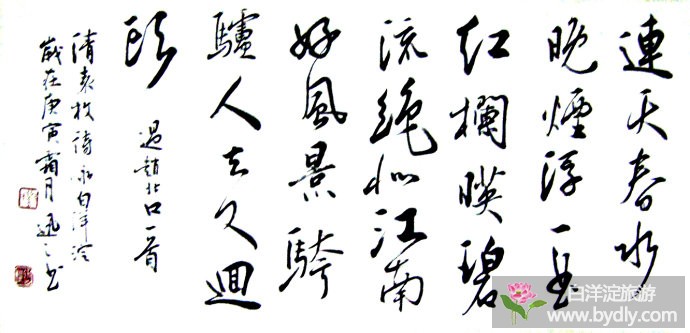 連天春水
晚煙浮一段
红欄暎碧
流絕似江南
好風景騎
驢人去又迴
頭
過趙北口一首
清袁枚詩詠白洋淀
歲在庚寅霜月迅之书
白洋淀旅游
www.bydly.com